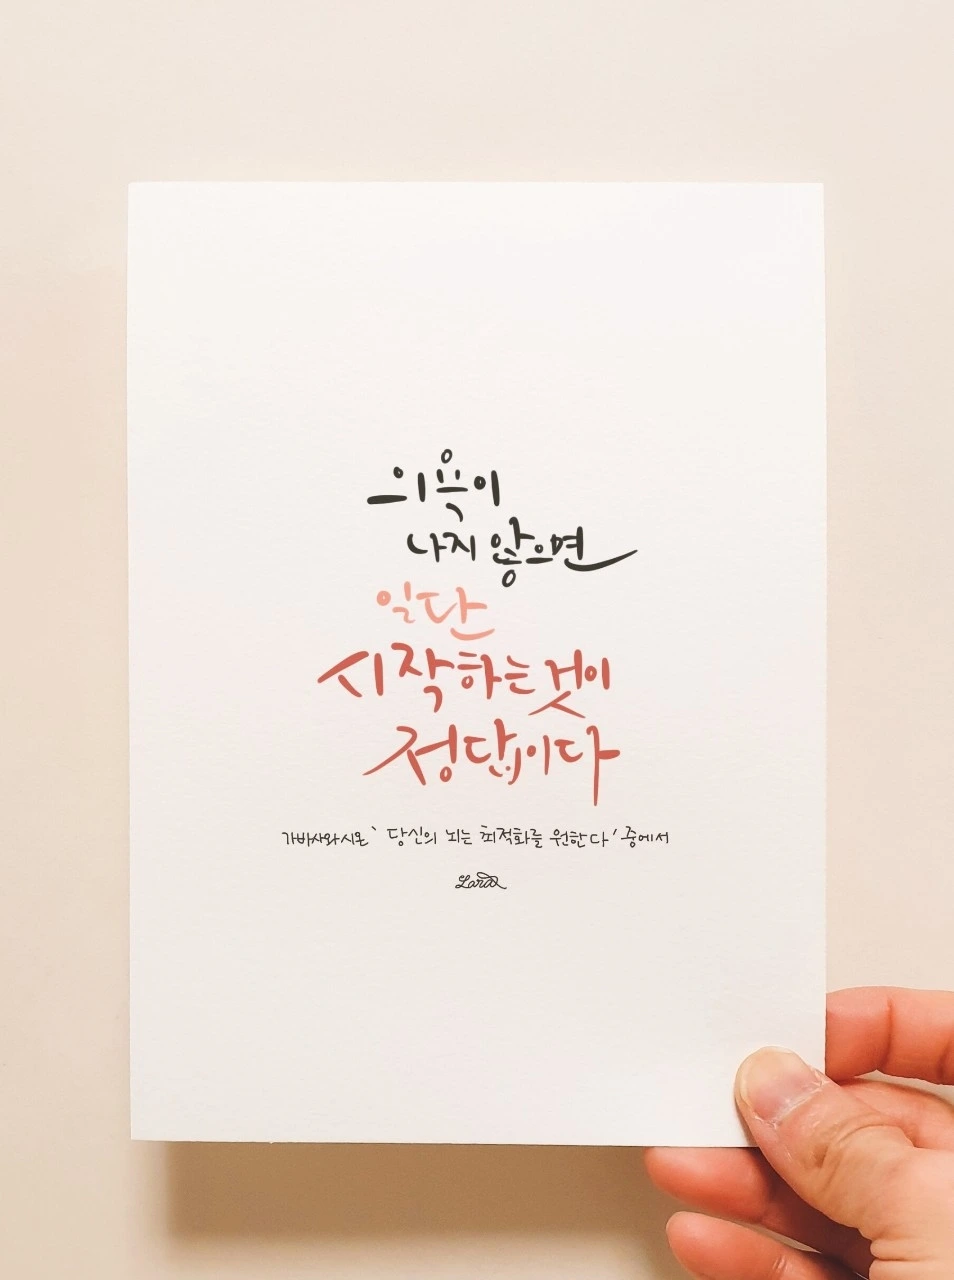 의욕이
나지 않으면
일단
시작하는 것이
정답이다
가바사와 시온 '당신의 뇌는 최적화를 원한다' 중에서
Lara